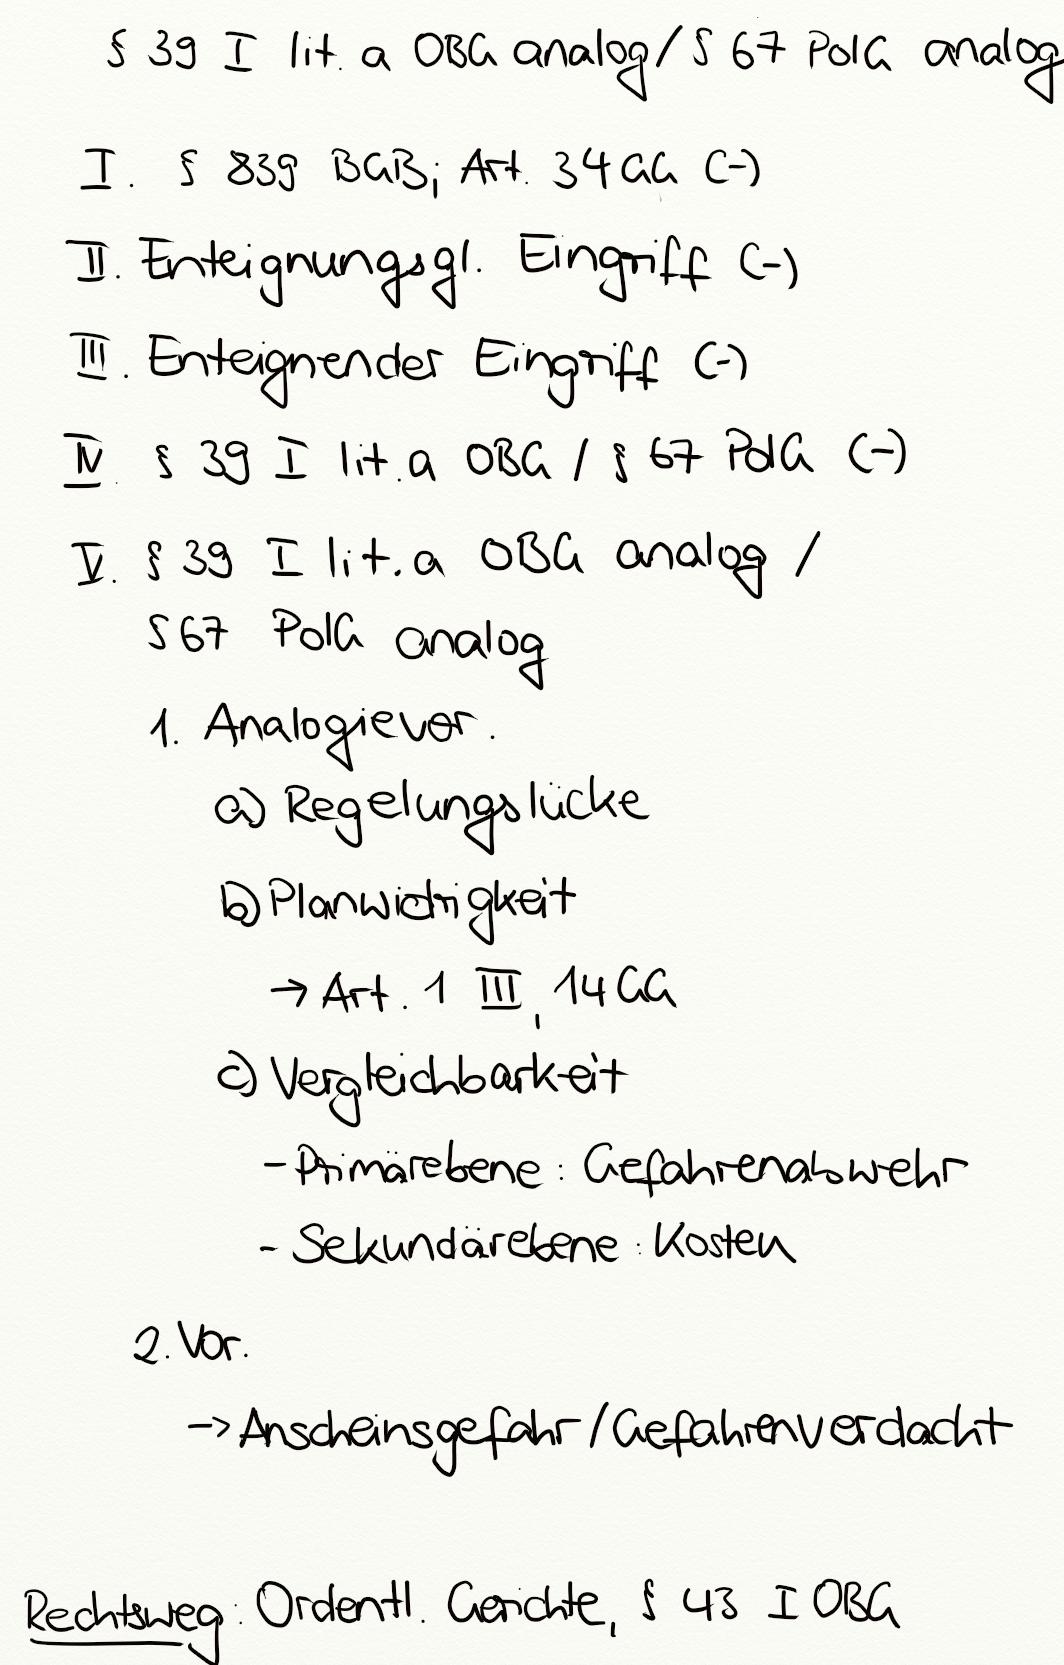 § 39 I lit. a OBG analog/§ 67 PolG analog
I. § 839 BGB; Art. 34 GG (-)
II. Enteignungsgl. Eingriff (-)
III. Enteignender Eingriff (-)
IV. § 39 I lit.a OBG / § 67 PolG (-)
V. § 39 I lit.a OBG analog /
§ 67 PolG analog
1. Analogievor.
a) Regelungslücke
b) Planwidrigkeit
→ Art. 1 III, 14 GG
c) Vergleichbarkeit
- Primärebene: Gefahrenabwehr
- Sekundärebene: Kosten
2. Vor.
→ Anscheinsgefahr/Gefahrenverdacht
Rechtsweg: Ordentl. Gerichte, § 43 I OBG